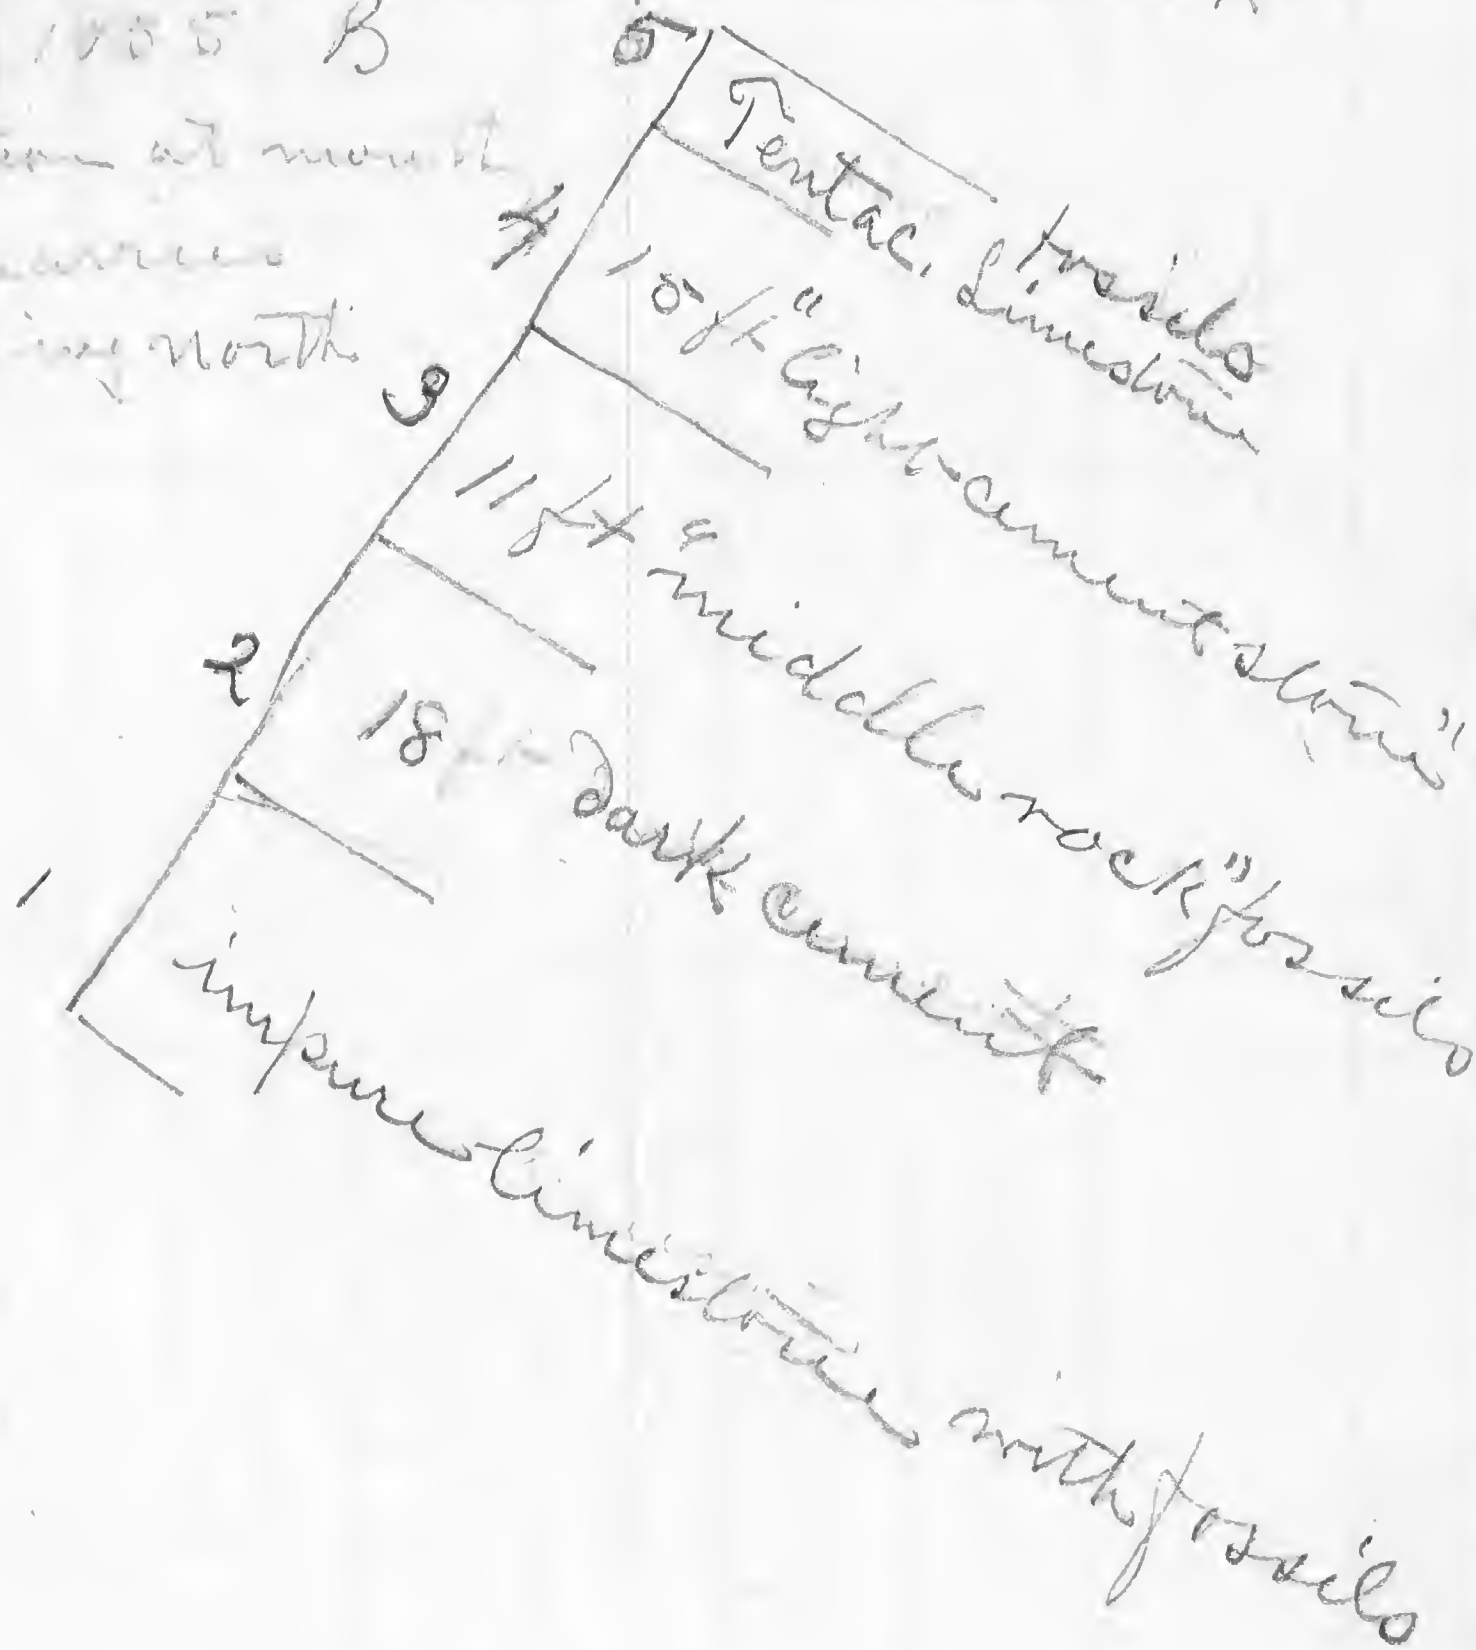 B
at mouth
north
5 Tentac. Limestone
fossils
4 15 ft "light cement stone"
3 11 ft "middle rock" fossils
2 18 ft dark cement
1 impure limestone with fossils